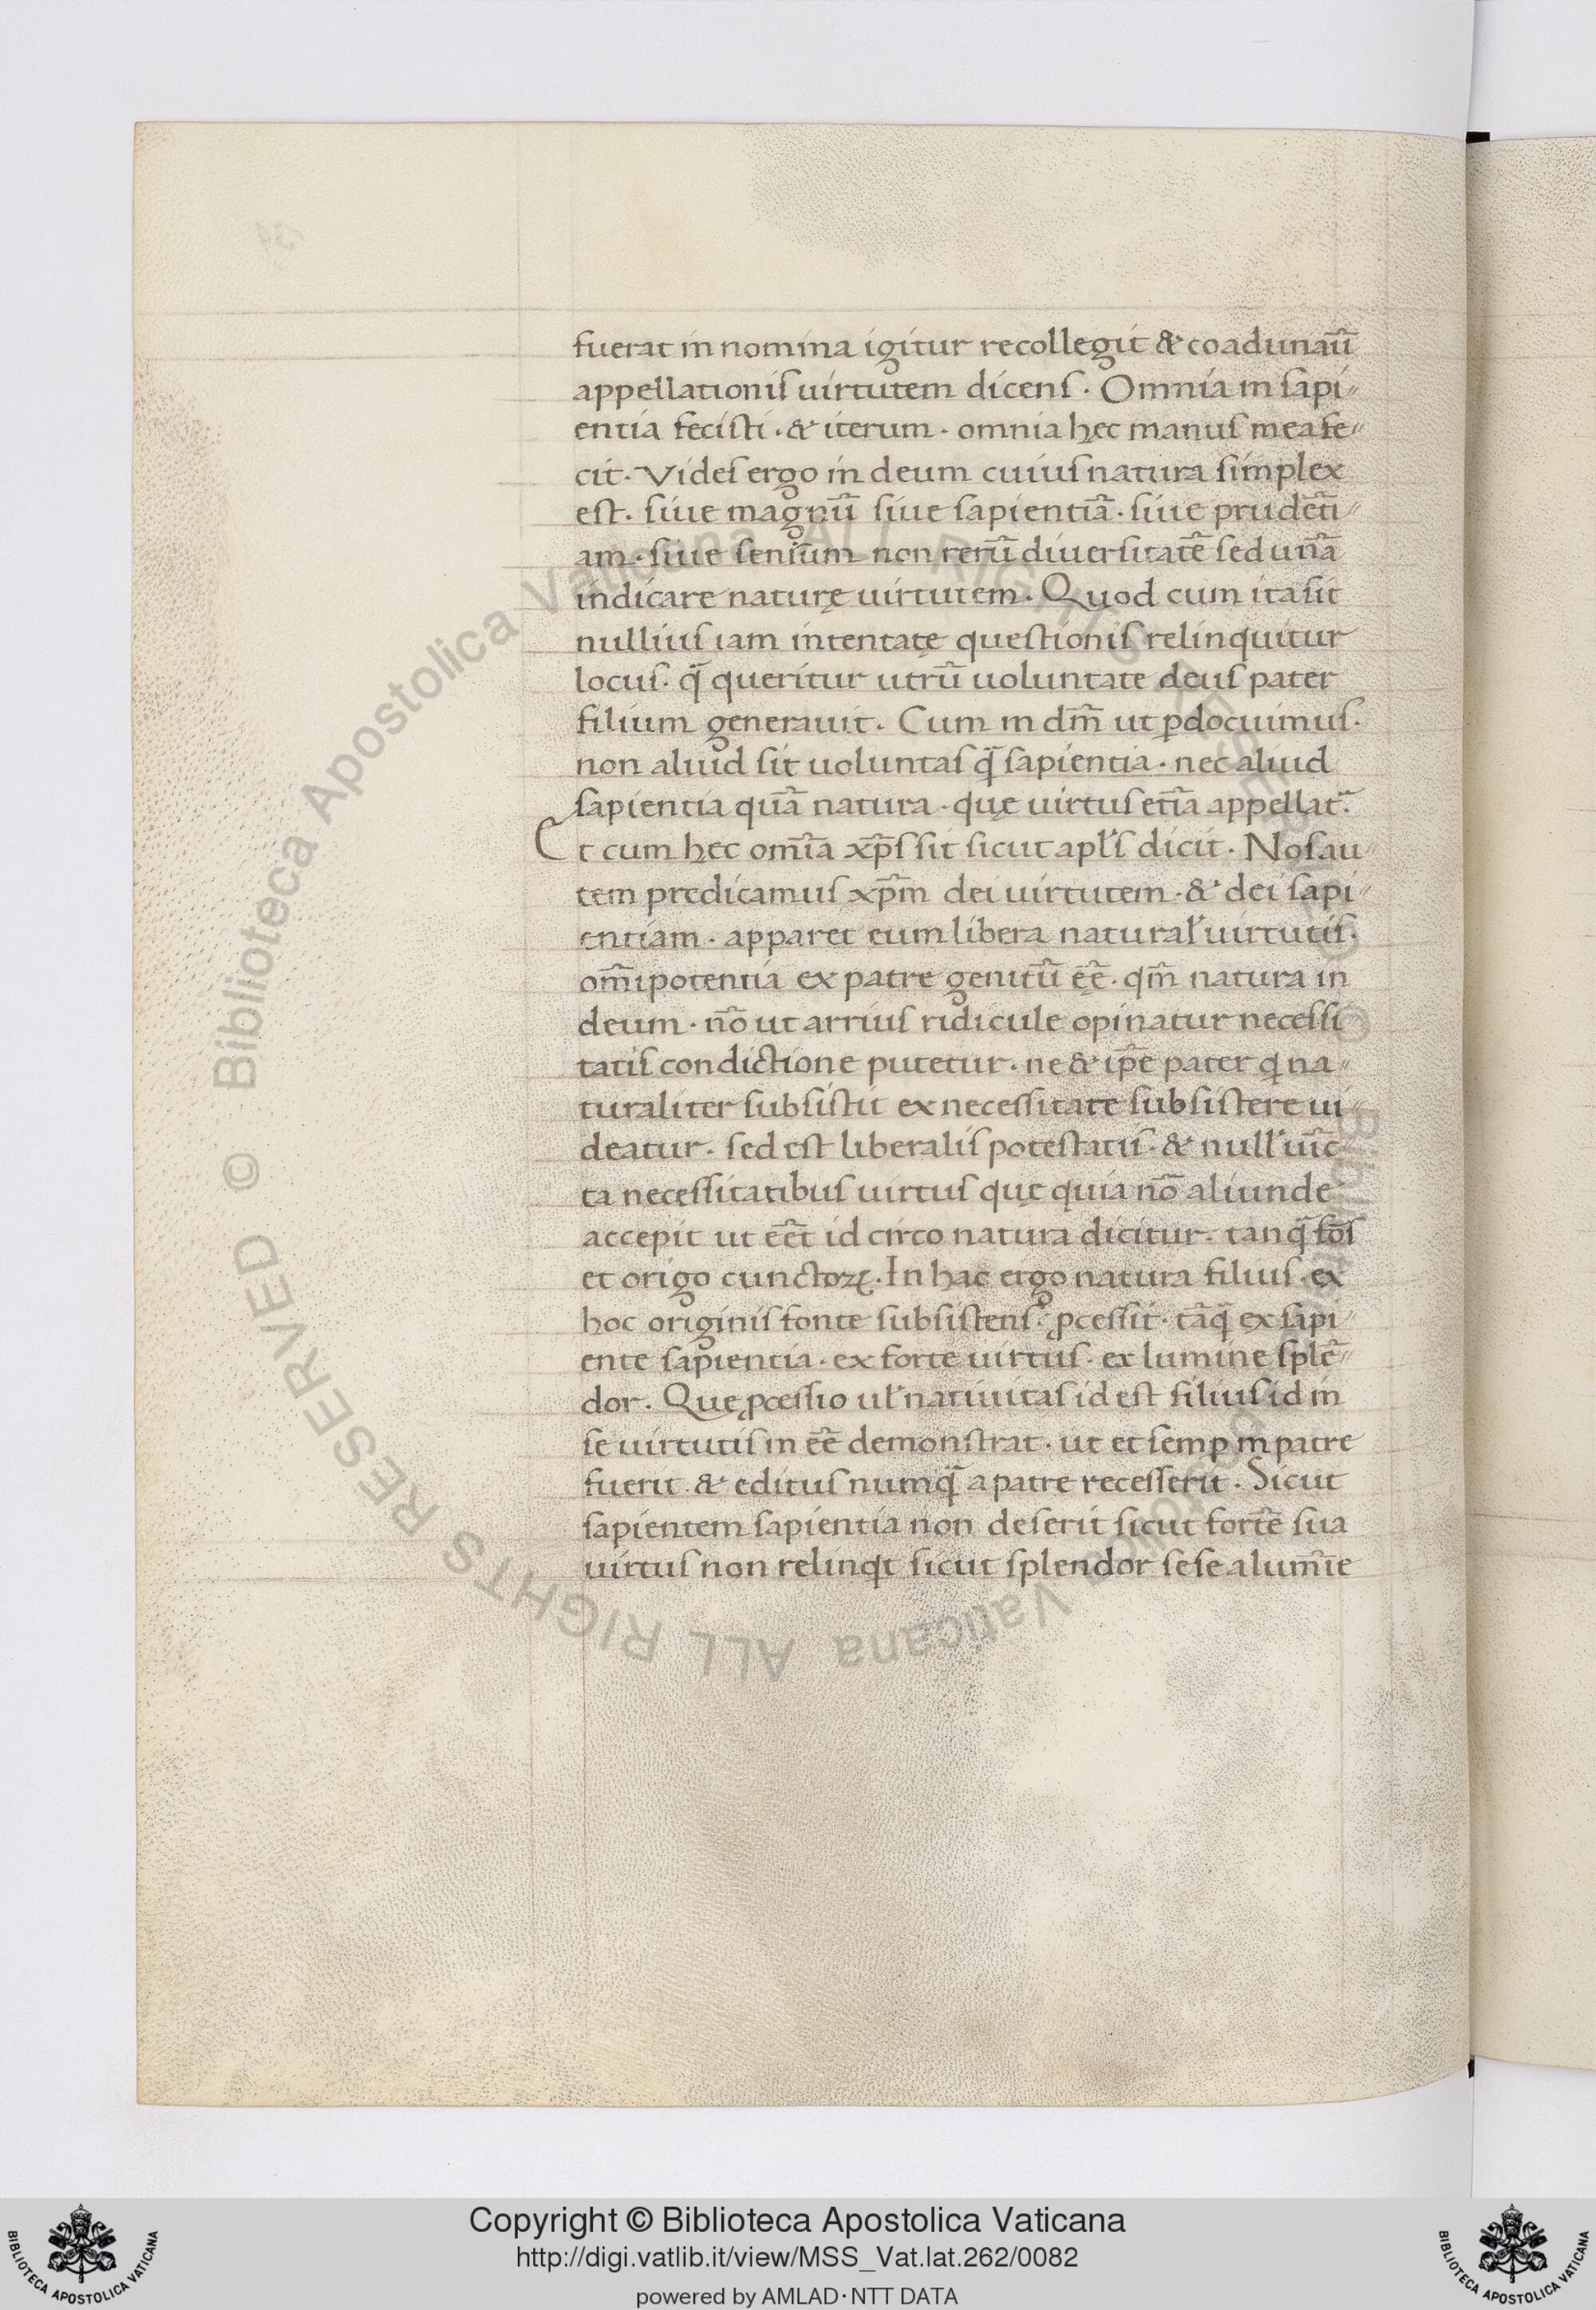 fuerat in nomina igitur recollegit & coadunaũ
appellationis uirtutem dicens · Omnia in sapi〃
entia fecisti · & iterum · omnia hęc manus mea fe〃
cit · Vides ergo in deum cuius natura simplex
est · siue magnũ siue sapientiã · siue prudẽti〃
am · siue senũm non rerũ diuersitatẽ sed unã
indicare naturę uirtutem · Quod cum ita sit
nullius iam intentatę questionis relinquitur
locus · q̃ queritur utrũ uoluntate deus pater
filium generauit · Cum in dm̃ ut ꝑdocuimus ·
non aliud sit uoluntas q̃ sapientia · nec aliud
sapientia quã natura · quę uirtus etiã appellat᷑
Et cum hęc om̃ia xp̃s sit sicut apl̃s dicit · Nos au〃
tem predicamus xp̃m dei uirtutem · & dei sapi〃
entiam · apparet eum libera natural᷑ uirtutis ·
om̃ipotentia ex patre genitũ ẽẽ · qm̃ natura in
deum · nõ ut arrius ridicule opinatur necessi
tatis condictione putetur · ne & ip̃e pater q na〃
turaliter subsistit ex necessitate subsistere ui〃
deatur · sed est liberalis potestatis · & null᷑ uĩc
ta necessitatibus uirtus quę quia nõ aliunde
accepit ut ẽẽt id circo natura dicitur · tanq̃ fõs
et origo cunctoꝝ · In hac ergo natura filius · ex
hoc originis fonte subsistens · ꝓcessit · tãq̃ ex sapi〃
ente sapientia · ex forte uirtus · ex lumine splẽ〃
dor · Quę ꝓcessio ul᷑ natiuitas id est filius id in
se uirtutis in ẽẽ demonstrat · ut et semꝑ in patre
fuerit · & editus numq̃ a patre recesserit · Sicut
sapientem sapientia non deserit sicut fortẽ sua
uirtus non relinqt sicut splendor sese a lumĩe
Copyright © Biblioteca Apostolica Vaticana
http://digi.vatlib.it/view/MSS_Vat.lat.262/0082
powered by AMLAD·NTT DATA
BIBLIOTECA APOSTOLICA VATICANA
BIBLIOTECA APOSTOLICA VATICANA
© Biblioteca Apostolica Vaticana ALL RIGHTS RESERVED